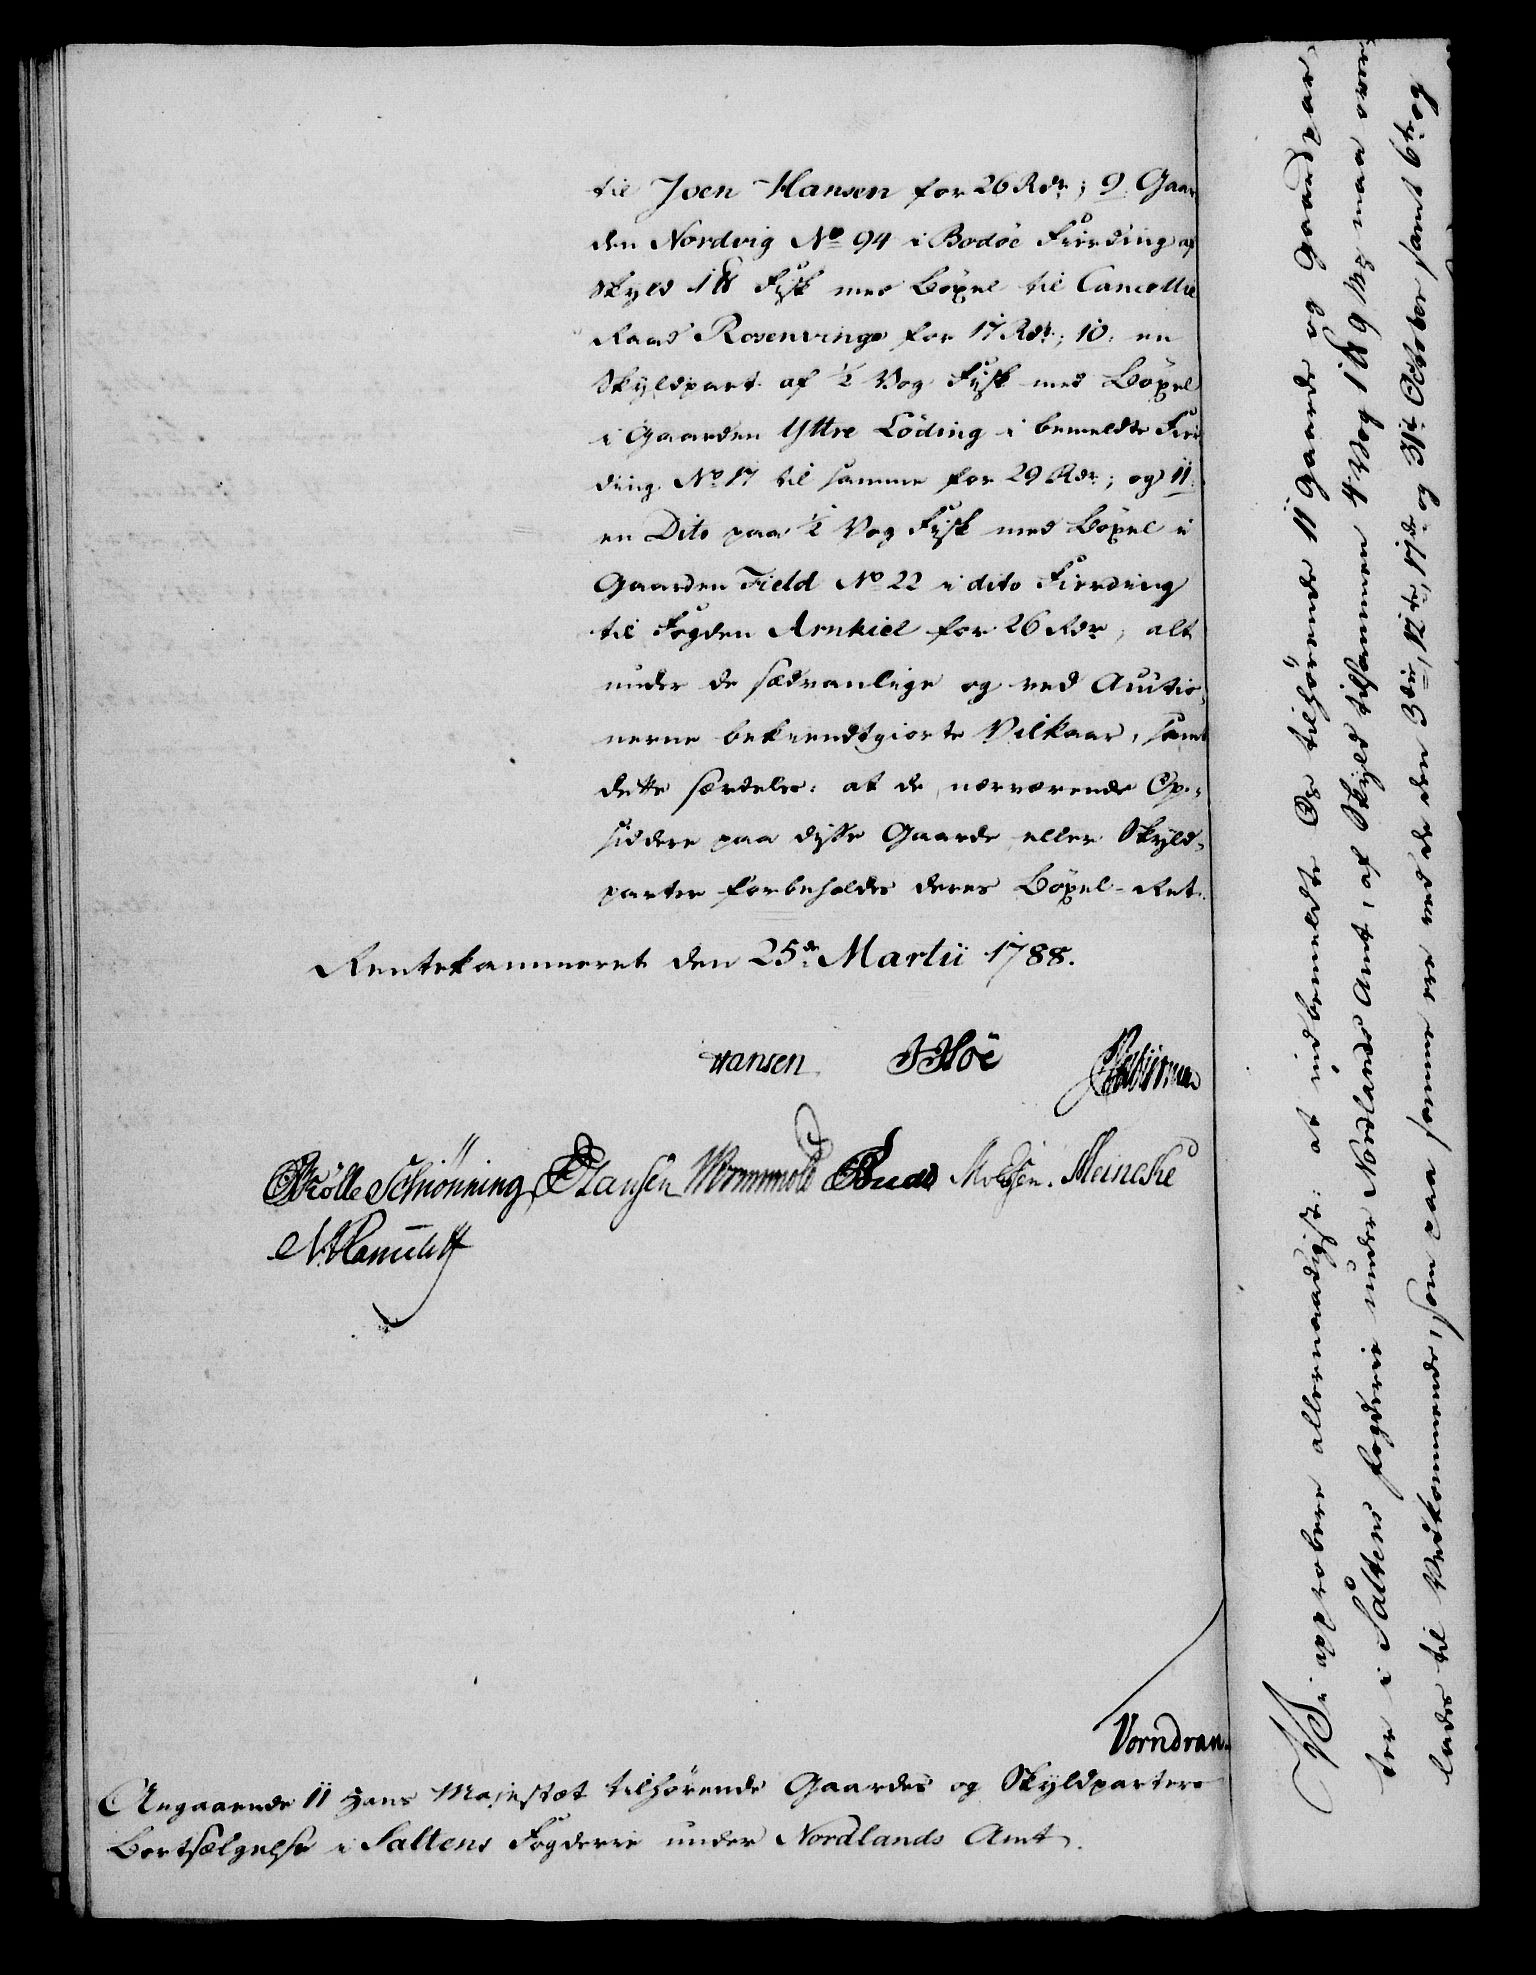 til Joen Hansen for 26 Rdr; 9. Gaar
den Nordvig No 94 i Bodøe Fierding af
Skyld 1 ℔ Fisk med Böxel til Cancellie
Raad Rosenvinge for 17 Rdr; 10. en
Skyldpart af ½ Vog Fisk med Böxel
i Gaarden Yttre Löding i bemeldte Fier
ding No 17 til samme for 29 Rdr; og 11.
en Dito paa ½ Vog Fisk med Böxel i
Gaarden Field No 22 i dito Fierding
til Fogden Arnkiel for 26 Rdr, alt
under de sædvanlige og ved Auctio,
nerne bekiendtgiorte Vilkaar, samt
dette særdeles: at de nærværende Op,
siddere paa disse Gaarde eller Skyld,
parter forbeholdes deres Böxel-Ret.
Rentekammeret den 25de Martii 1788.
Hansen JHöe
Trölle Schiönning Hansen Wormmold Budd Meineche
Vorndran.
Angaaende 11 Hans Majestæt tilhørende Gaardes og Skyldparters
Bortsælgelse i Saltens Fogderie under Nordlands Amt.
Vi approbere allernaadigst: at indbemeldte Os tilhörende 11 Gaarde og Gaardpar,
ter i Saltens Fogderie under Nordlands Amt, af Skyld tilsammen 4 Vog 1 ℔ 9 Mk maa over
lades til Vedkommende, som paa samme ere ved de den 3die, 12te, 17de og 31te October, samt 6te og